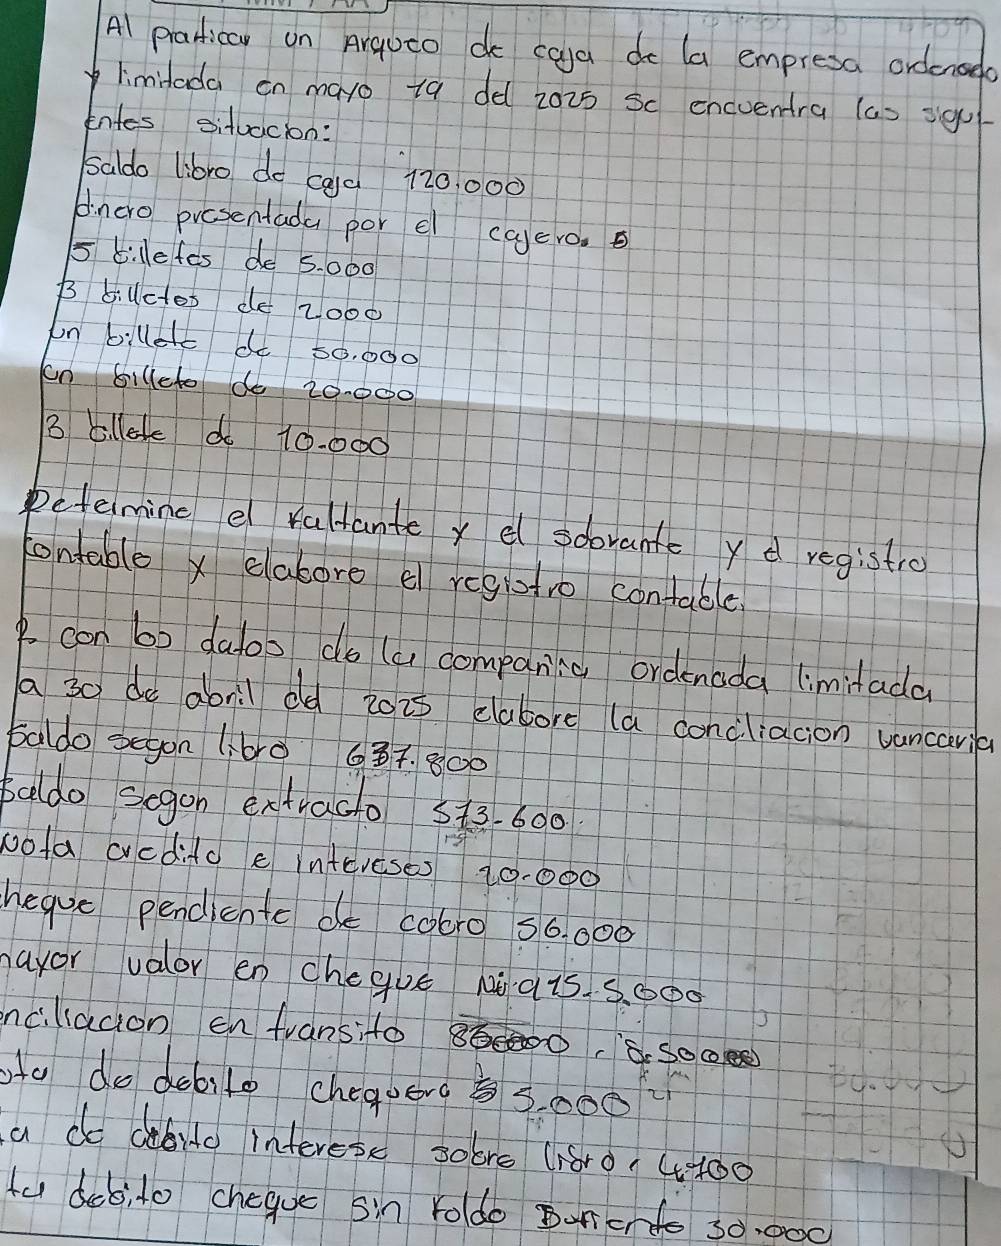 Al practicar un Arqueo de caja de la empresa ordenado
limitada en mayo 19 del 2025 se encuentra las sigui
entes situacion:
saldo libro de caja 120.000
dinero presentada por el cajero.
5 billetes de 5.000
3 billetes de 2000
un billete de 50.000
un billete de 20.000
3 billete de 10.000
Determine el faltante y el sobrante y el registro
contable y elabore el registro contable.
con los datos de la compania ordenada limitada
a 30 de abril del 2025 elabore la conciliacion vancaria
saldo segun libro 637.800
saldo segun extracto 573.600
nota credito e intereses 10.000
heque pendiente de cobro 56.000
mayor valor en cheque 5.000
nciliacion en transito
ota de debito chequera 5.000
a de debito interese sobre libro. 4.700
ta debito cheque sin foldo 30.000